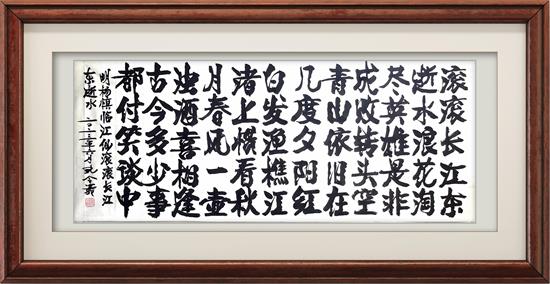 滚滚长江东
逝水浪花淘
尽英雄是非
成败转头空
青山依旧在
几度夕阳红
白发渔樵江
渚上惯看秋
月春风一壶
浊酒喜相逢
古今多少事
都付笑谈中
明杨慎临江仙滚滚长江
东逝水 二〇二三年六月